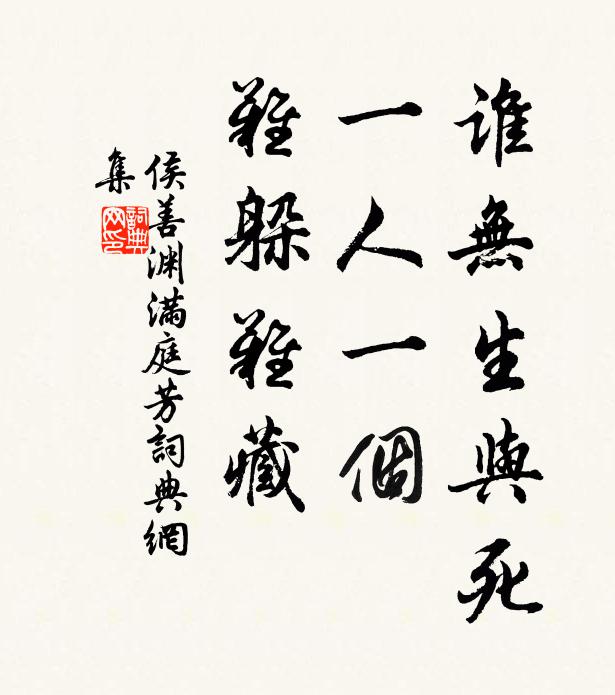 誰無生與死
一人一個
難躲難藏
侯善渊滿庭芳詞典網
集
詞典網印